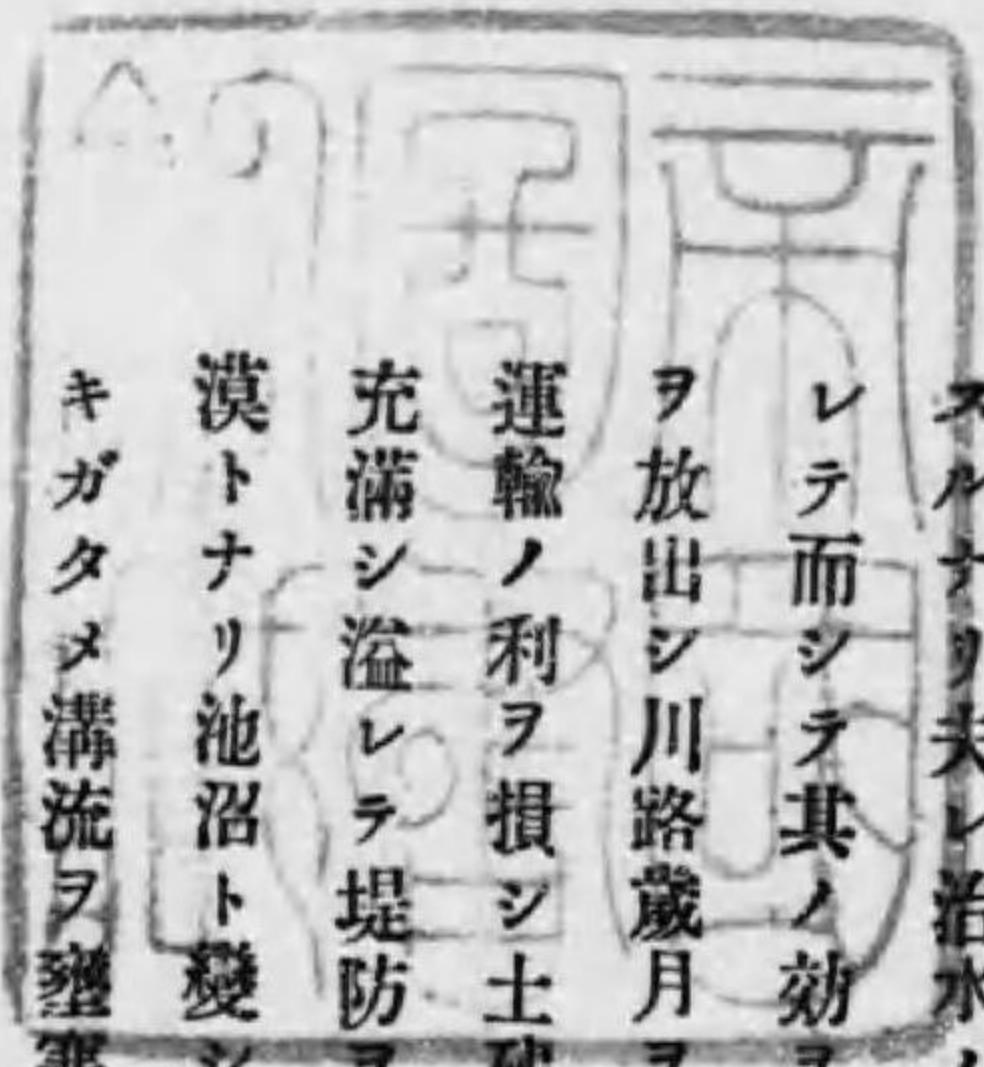 スルナリ夫レ治水ノ
レテ而シテ其ノ効ヲ
ヲ放出シ川路歲月ヲ
運輸ノ利ヲ損シ土砂
充滿シ溢レテ堤防ヲ
漠トナリ池沼ト變シ
キガタメ溝流ヲ壅塞